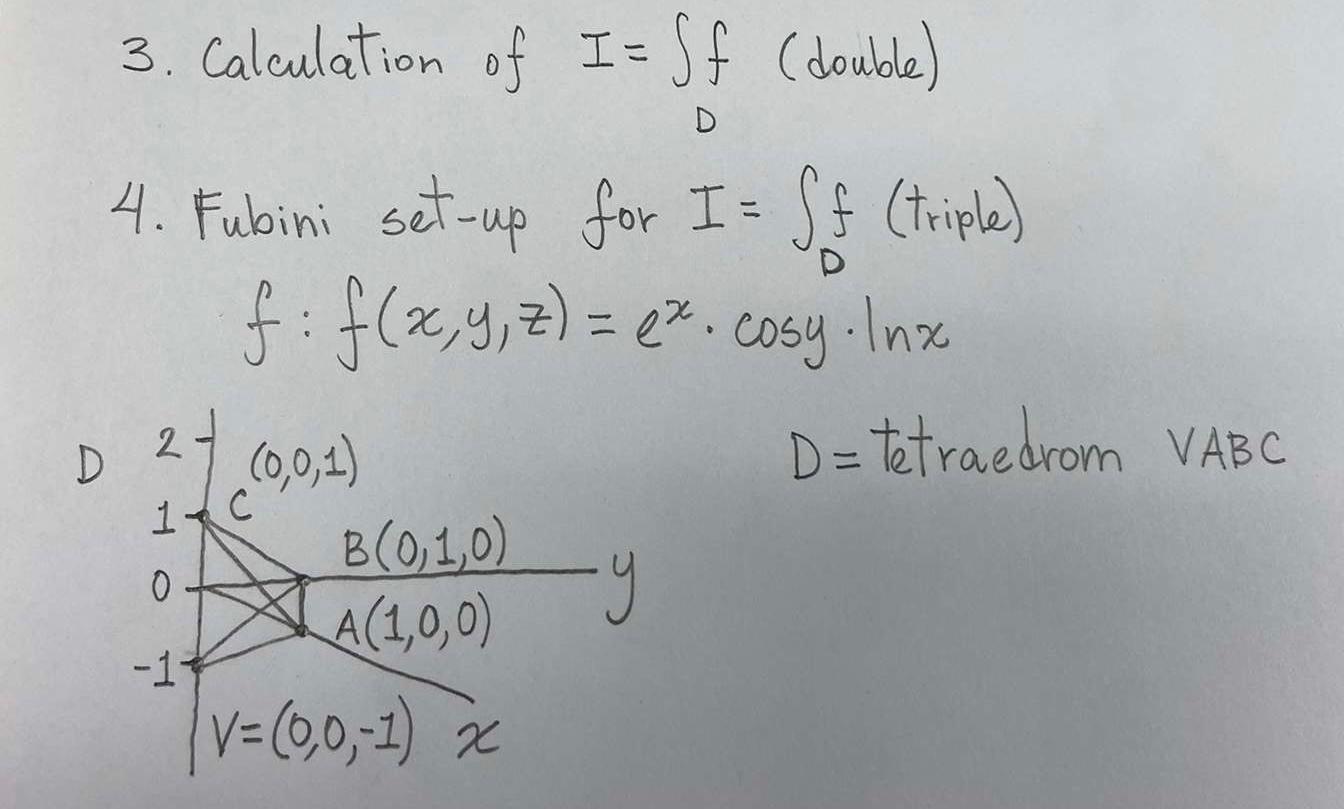 3. Calculation of I = ∫f (double)
D
4. Fubini set-up for I = ∫f (triple)
D
f : f(x,y,z) = eˣ · cosy · lnx
D 2 (0,0,1) D = tetraedrom VABC
1 C
B(0,1,0)
0 y
A(1,0,0)
-1
V=(0,0,-1) x